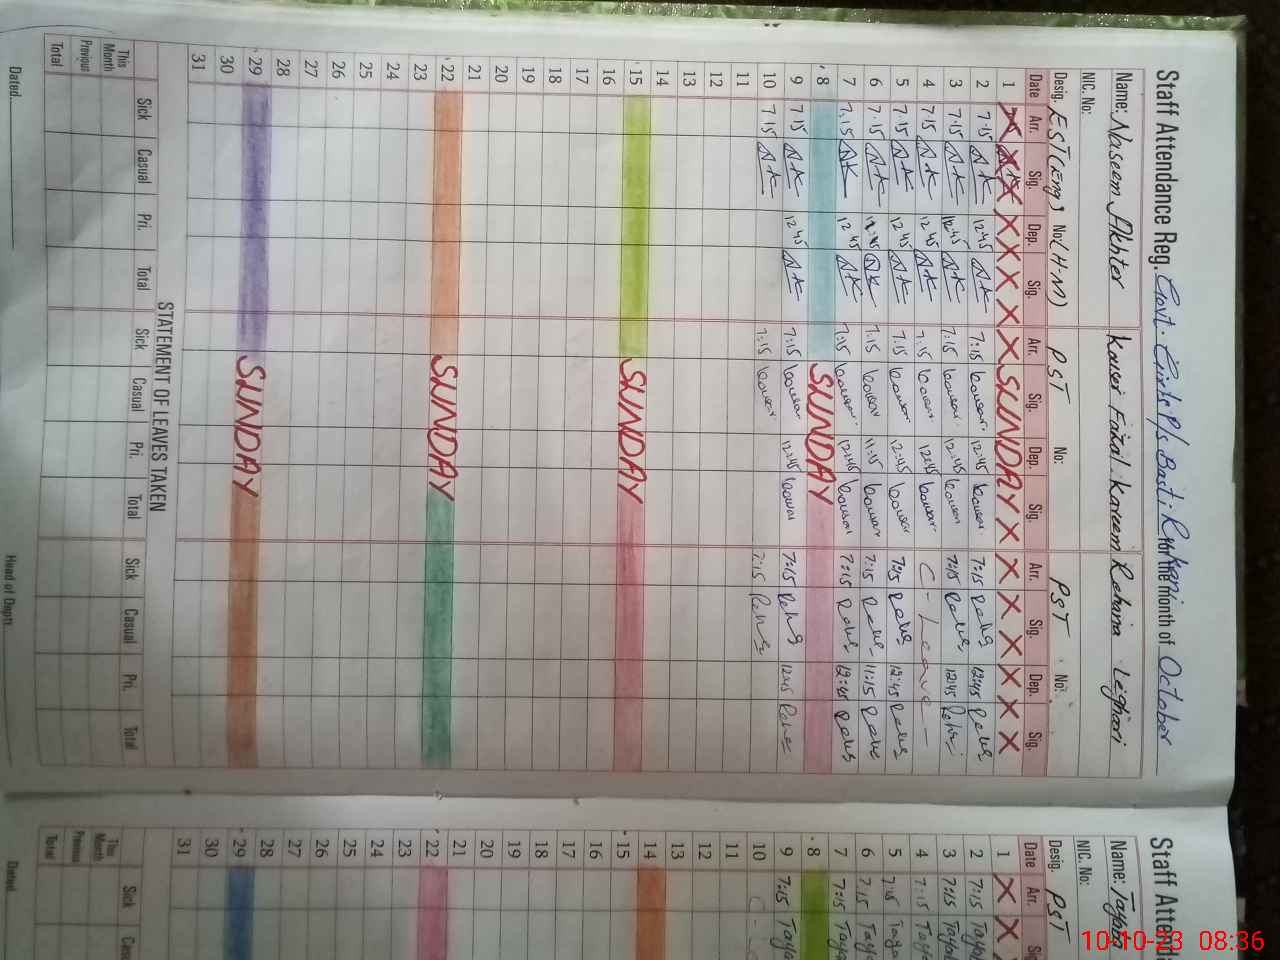 Staff Attendance Reg. Govt. Girls P/s. Basti R for the month of October
Name: Naseem Akhter Kausar Fazal Kareem Rehana Leghari
NIC. No:
Desig. EST(Eng) No:(H-M) PST No: PST No:
Date Arr. Sig. Dep. Sig. Arr. Sig. Dep. Sig. Arr. Sig. Dep. Sig.
1 X X X X X X SUNDAY X X X X X X
2 7:15 12:45 7:15 Kousar. 12:45 Kousar. 7:15 12:45
3 7:15 12:45 7:15 Kousar. 12:45 Kousar 7:15 12:45
4 7:15 12:45 7:15 Kousar. 12:45 Kousar. C - Leave -
5 7:15 12:45 7:15 Kousar 12:45 Kousar 7:15 12:45
6 7:15 7:15 Kousar 11:15 Kousar 7:15 11:15
7 7:15 12:45 7:15 Kousar. 12:45 Kousar 7:15 12:45
8 SUNDAY
9 7:15 12:45 7:15 Kousar 12:45 Kousar 7:15 12:45
10 7:15 7:15 Kousar 7:15
11
12
13
14
15 SUNDAY
16
17
18
19
20
21
22 SUNDAY
23
24
25
26
27
28
29 SUNDAY
30
31
STATEMENT OF LEAVES TAKEN
Sick Casual Pri. Total Sick Casual Pri. Total Sick Casual Pri. Total
This Month
Previous
Total
Dated Head of Deptt.
Staff Attend
Name: Tayba
NIC. No:
Desig. PST
Date Arr.
1 X X
2 7:15
3 7:15
4 7:15
5 7:15
6 7:15
7 7:15
8
9 7:15
10 C -
11
12
13
14
15
16
17
18
19
20
21
22
23
24
25
26
27
28
29
30
31
Sick
This Month
Previous
Total
Dated
10-10-23 08:36